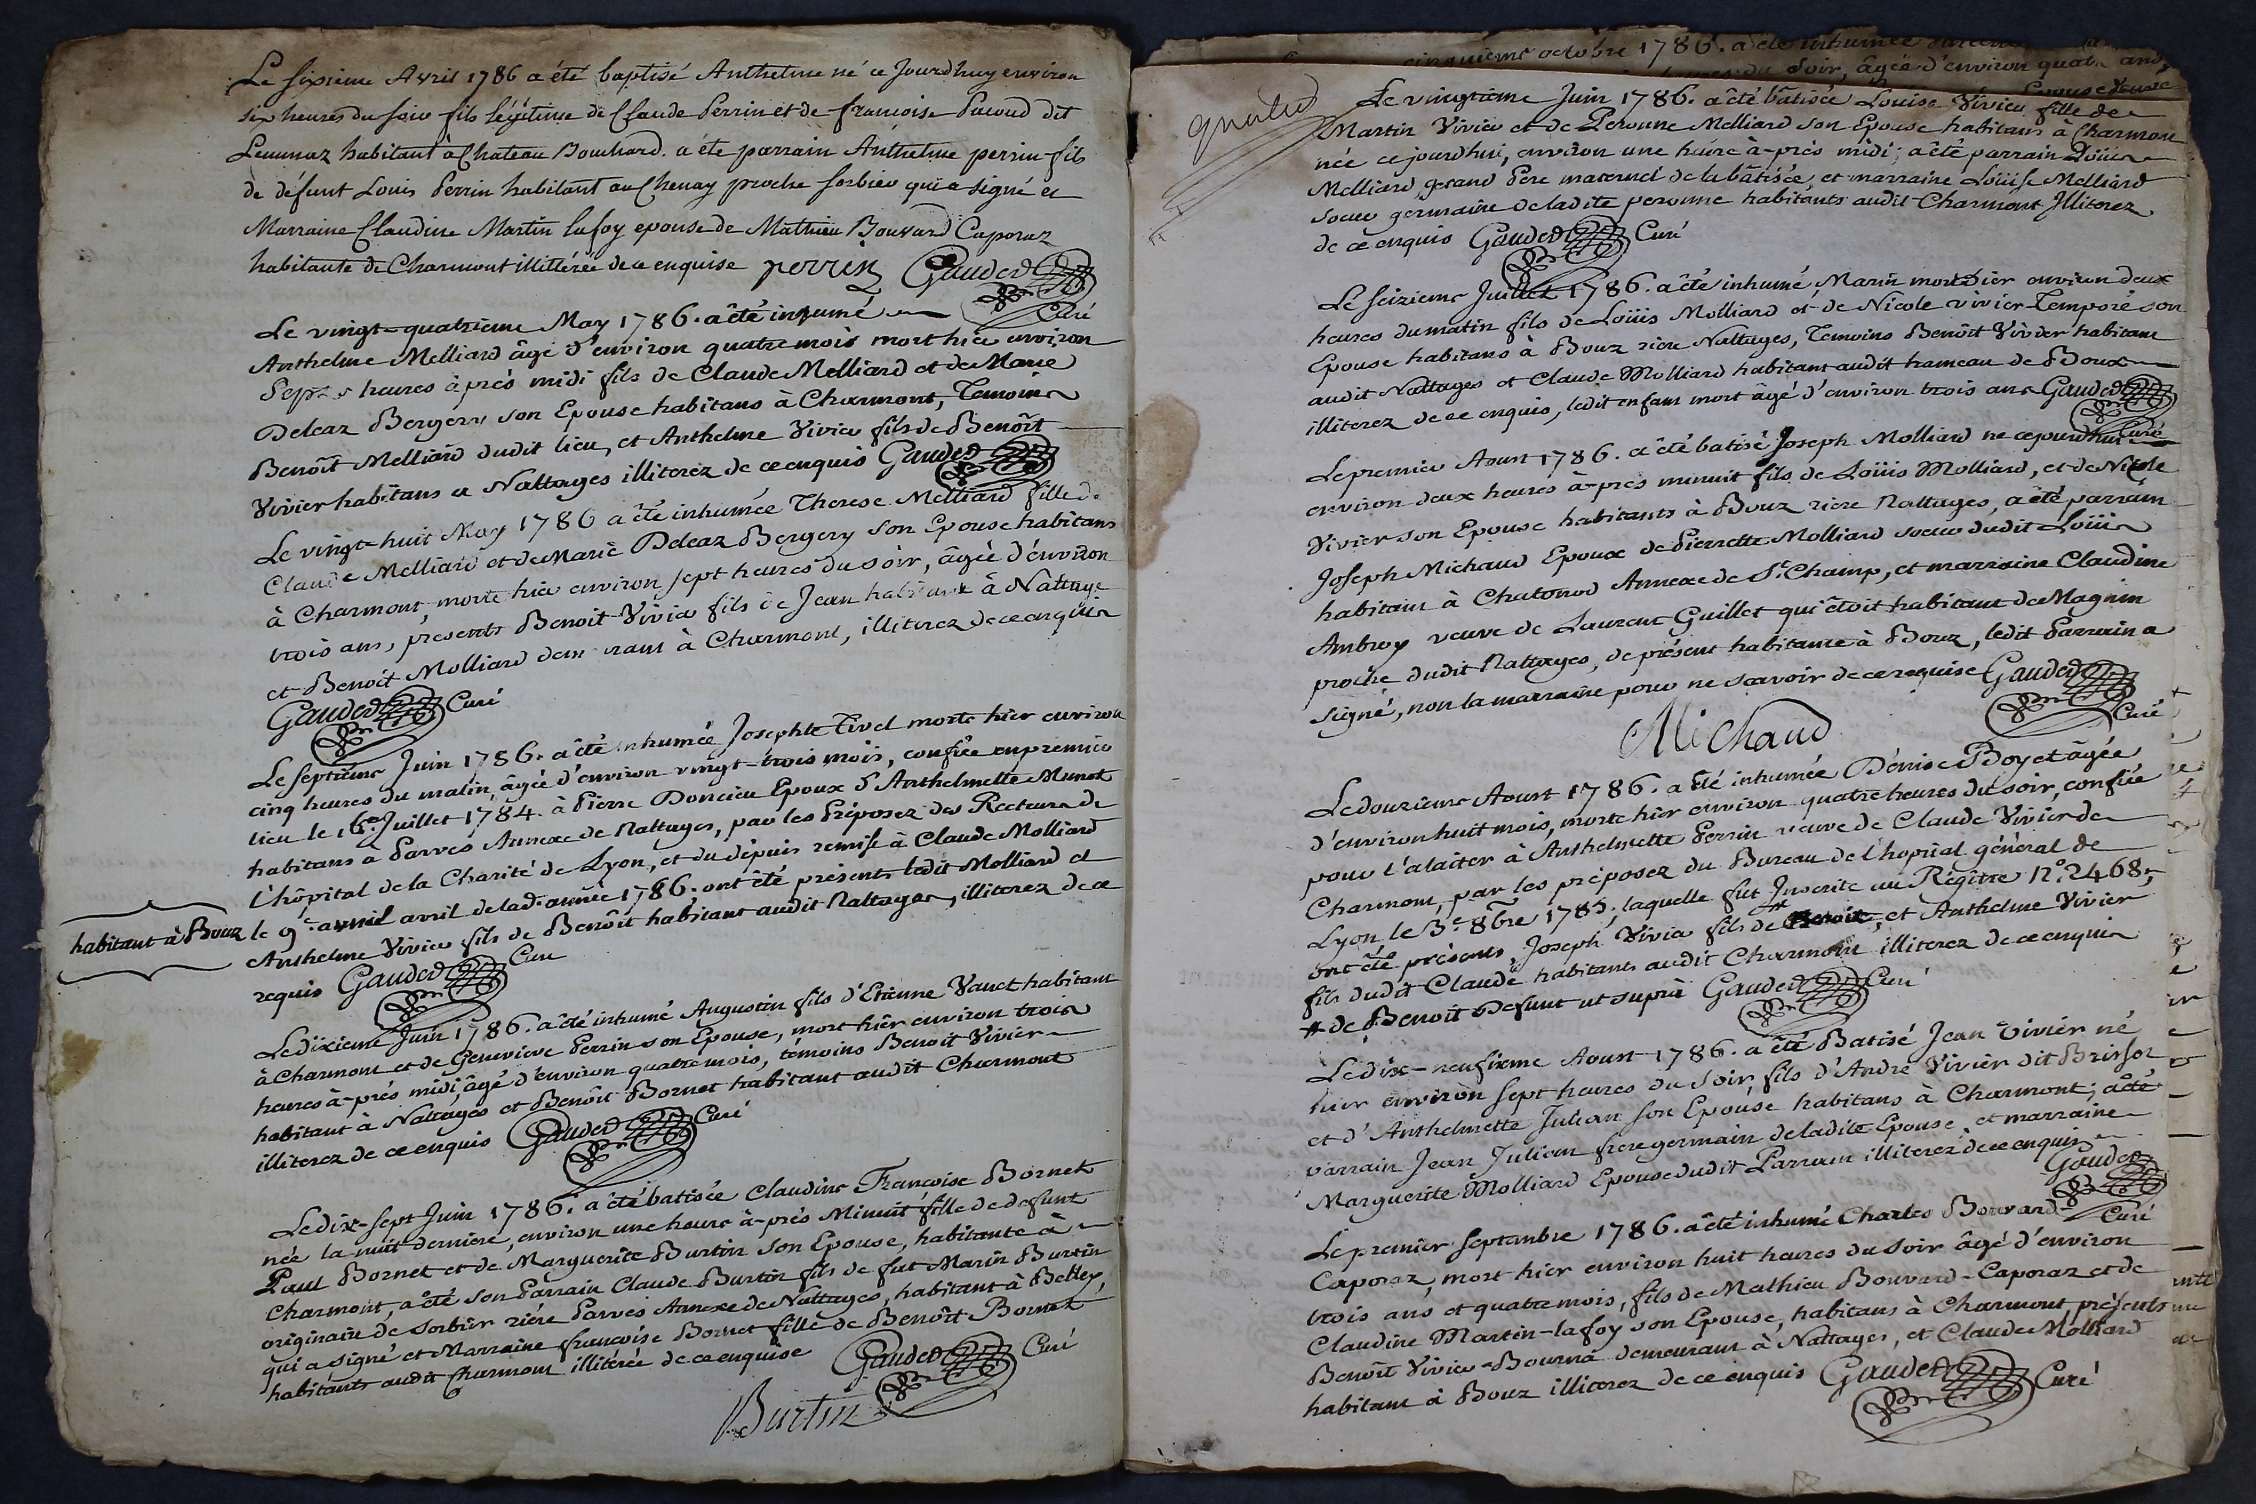 Le sixieme Avril 1786 a été baptisé Anthelme né ce Jourdhuy environ
six heures du soir fils légitime de Claude Perrin et de francoise Pacoud dit
Lemmaz habitant a Chateau Bouchard. a été parrain Anthelme perrin fils
de défunt Louis Perrin habitant au Chenay proche sorbier qui a signé et
Marraine Claudine Martin lafoy epouse de Mathieu Bouvard Caporaz
habitante de Charmont illitérée de ce enquise perrin Gauded
Curé
Le vingt-quatrieme May 1786. a été inhumé
Anthelme Melliard âgé d'environ quatre mois mort hier environ
Sept heures après midi fils de Claude Melliard et de Marie
Deleaz Bergery son Epouse habitans à Charmont, Temoins
Benoît Melliard dudit lieu, et Anthelme Vivier fils de Benoît
Vivier habitans a Nattages illiterez de ce enquis Gauded
Le vingt-huit May 1786 a été inhumée Therese Melliard fille de
Claude Melliard et de Marie Deleaz Bergery son Epouse habitans
à Charmont, morte hier environ sept heures du soir, âgée d'environ
trois ans, presents Benoit Vivier fils de Jean habitant à Nattage
et Benoît Molliard demeurant à Charmont, illiterez de ce enquis
Gauded Curé
Le septieme Juin 1786. a été inhumée Josephte Tivel morte hier environ
cinq heures du matin, âgée d'environ vingt-trois mois, confiée en premier
lieu le 16e Juillet 1784. à Pierre Doncieu Epoux d'Anthelmette Munet
habitans à Parves Annexe de Nattages, par les Préposez des Recteurs de
l'hôpital de la Charité de Lyon, et du depuis remise à Claude Molliard
habitant à Bouz le 9e avril avril de lad. année 1786. ont été présents ledit Molliard et
Anthelme Vivier fils de Benoît habitant audit Nattages, illiterez de ce
requis Gauded Curé
Le dixieme Juin 1786. a été inhumé Augustin fils d'Etienne Vanet habitant
à Charmont et de Genevieve Perrin son Epouse, mort hier environ trois
heures à-près midi, âgé d'environ quatre mois, témoins Benoit Vivier
habitant à Nattages et Benoît Bornet habitant audit Charmont
illiterez de ce enquis Gauded Curé
Le dix-sept Juin 1786. a été batisée Claudine Francoise Bornet
née la nuit derniere, environ une heure à-près Minuit fille de defunt
Paul Bornet et de Marguerite Burtin son Epouse, habitante à
Charmont, a été son Parrain Claude Burtin fils de fut Marin Burtin
originaire de Sorbier riére Parves Annexe de Nattages, habitant à Belley,
qui a signé et Marraine francoise Bornet fille de Benoît Bornet
habitants audit Charmont illitérée de ce enquise Gauded Curé
Burtin
cinquieme octobre 1786. a été inhumée
du Soir, âgée d'environ quatre ans,
Le vingtieme Juin 1786. a été bâtisée Louise Vivier fille de
Martin Vivier et de Peronne Melliard son Epouse habitans à Charmont
née ce jourdhui, environ une heure à-près midi; a été parrain Loüis
Melliard grand Pere maternel de la bâtisée, et marraine Loüise Melliard
soeur germaine de ladite peronne habitants audit Charmont Jlliterez
de ce enquis Gauded Curé
Le seizieme Juillet 1786. a été inhumé Marin mort hier environ deux
heures du matin fils de Loüis Molliard et de Nicole vivier Temporé son
Epouse habitans à Bouz riere Nattages, Temoins Benoît Vivier habitant
audit Nattages et Claude Molliard habitant audit hameau de Bouz
illiterez de ce enquis, ledit enfant mort âgé d'environ trois ans Gauded
Curé
Le premier Aoust 1786. a été batisé Joseph Molliard ne cejourdhui
environ deux heures à-près minuit fils de Loüis Molliard, et de Nicole
Vivier son Epouse habitants à Bouz riere Nattages, a été parrain
Joseph Michaud Epoux de Pierrette Molliard soeur dudit Loüis
habitant à Chatonod Annexe de St. Champ, et marraine Claudine
Ambroy veuve de Laurent Guillet qui étoit habitant de Magnin
proche dudit Nattages, de présent habitante à Bouz, ledit Parrain a
signé, non la marraine pour ne sçavoir de ce requise Gauded
Curé
Michaud
Le douzieme Aoust 1786. a été inhumée Dénise Boyet âgée
d'environ huit mois, morte hier environ quatre heures du soir, confiée
pour l'alaiter à Anthelmette Perrin veuve de Claude Vivier de
Charmont, par les préposez du Bureau de l'hopital général de
Lyon le 3.e 8bre 1785. laquelle fut Jnscrite au Régitre N.o 2468,
ont été présents, Joseph Vivier fils de Benoit, et Anthelme Vivier
fils dudit Claude habitants audit Charmont illiterez de ce enquis
# de Benoit Defunt ut suprà Gauded Curé
Le dix-neufieme Aoust 1786. a été Batisé Jean Vivier né
hier environ sept heures du soir, fils d'André Vivier dit Brissot
et d'Anthelmette Julian son Epouse habitans à Charmont; a été
parrain Jean Julian frere germain de ladite Epouse, et marraine
Marguerite Molliard Epouse dudit Parrain illiterez de ce enquis
Gauded
Curé
Le premier septembre 1786. a été inhumé Charles Bouvard
Caporaz, mort hier environ huit heures du soir âgé d'environ
trois ans et quatre mois, fils de Mathieu Bouvard-Caporaz et de
Claudine Martin-lafoy son Epouse, habitans à Charmont, présents
Benoît Vivier-Bourna demeurant à Nattages, et Claude Molliard
habitant à Bouz illiterez de ce enquis Gauded Curé